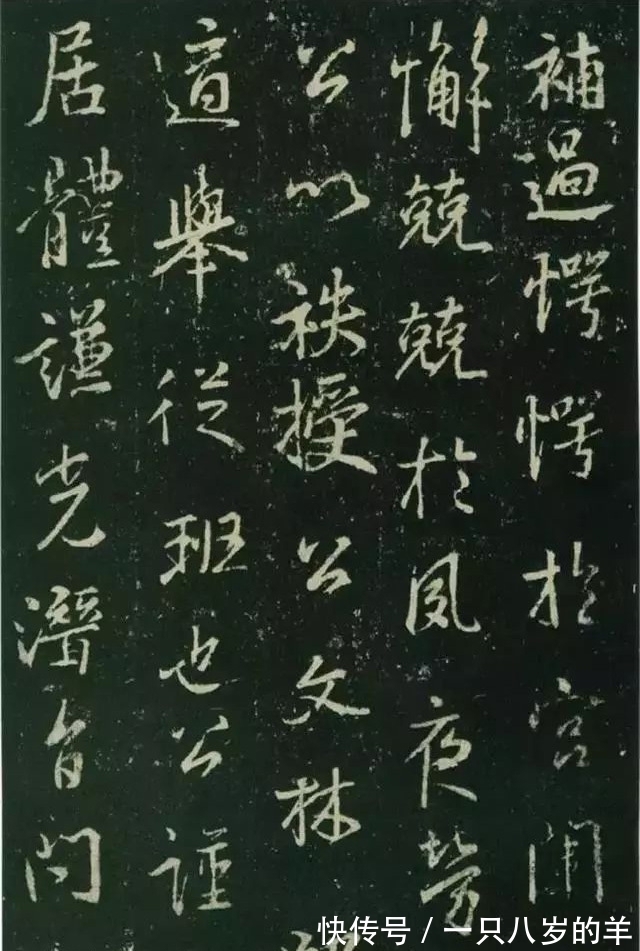 補過愕愕於宮闈
懈兢兢於夙夜
公以秩授公文林
道舉從班也公謹
居體謙光潛旨問
快传号/一只八岁的羊